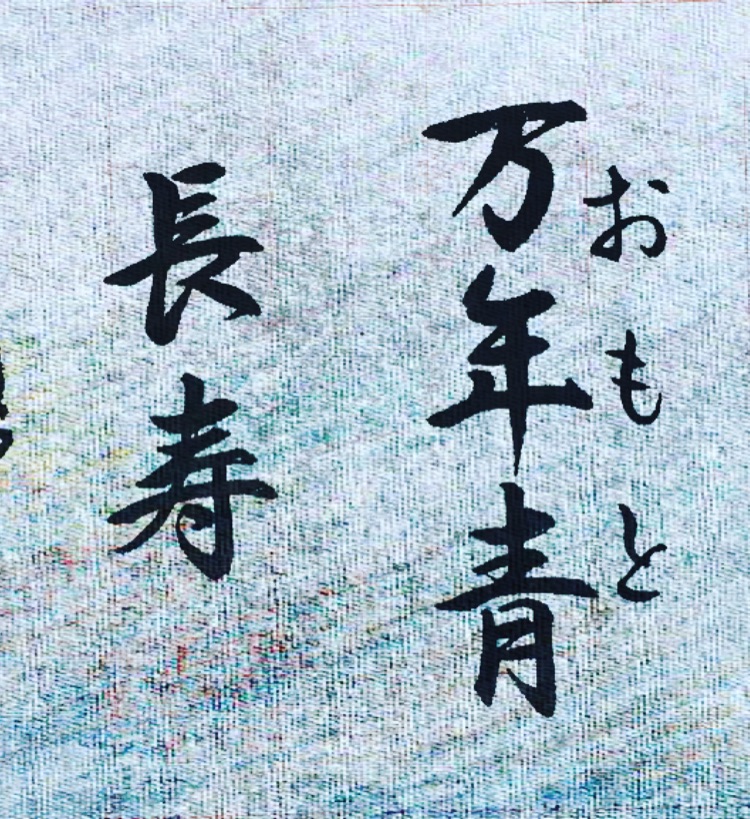 おもと
万年青
長寿